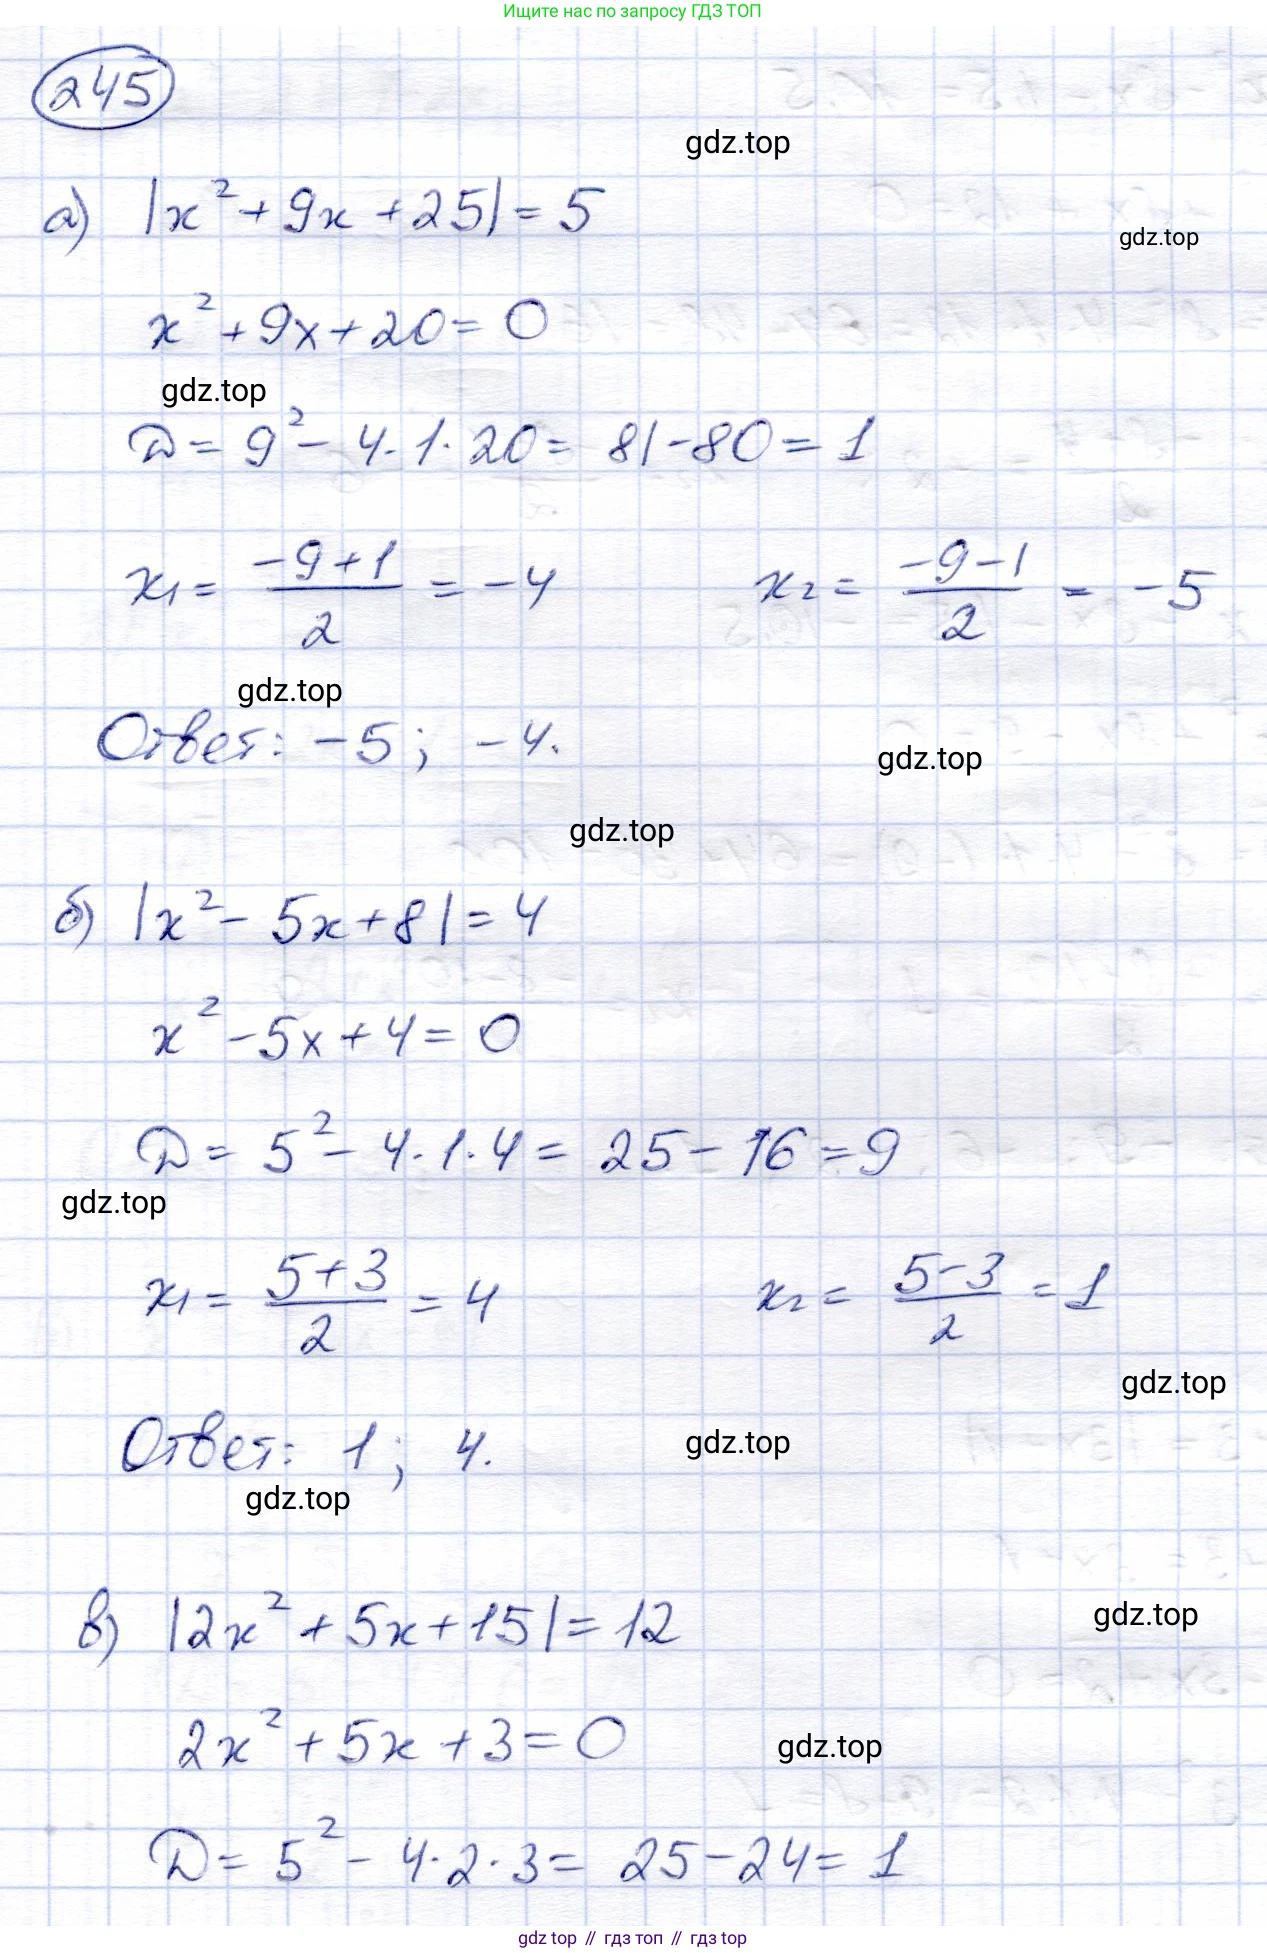 Ищите нас по запросу ГДЗ ТОП
245
gdz.top
а) |x² + 9x + 25| = 5
gdz.top
x² + 9x + 20 = 0
gdz.top
D = 9² - 4·1·20 = 81 - 80 = 1
x₁ = (-9+1)/2 = -4    x₂ = (-9-1)/2 = -5
gdz.top
Ответ: -5; -4.
gdz.top
gdz.top
б) |x² - 5x + 8| = 4
x² - 5x + 4 = 0
D = 5² - 4·1·4 = 25 - 16 = 9
gdz.top
x₁ = (5+3)/2 = 4    x₂ = (5-3)/2 = 1
gdz.top
Ответ: 1; 4.
gdz.top
gdz.top
в) |2x² + 5x + 15| = 12
gdz.top
2x² + 5x + 3 = 0
gdz.top
D = 5² - 4·2·3 = 25 - 24 = 1
gdz top // гдз топ // гдз top